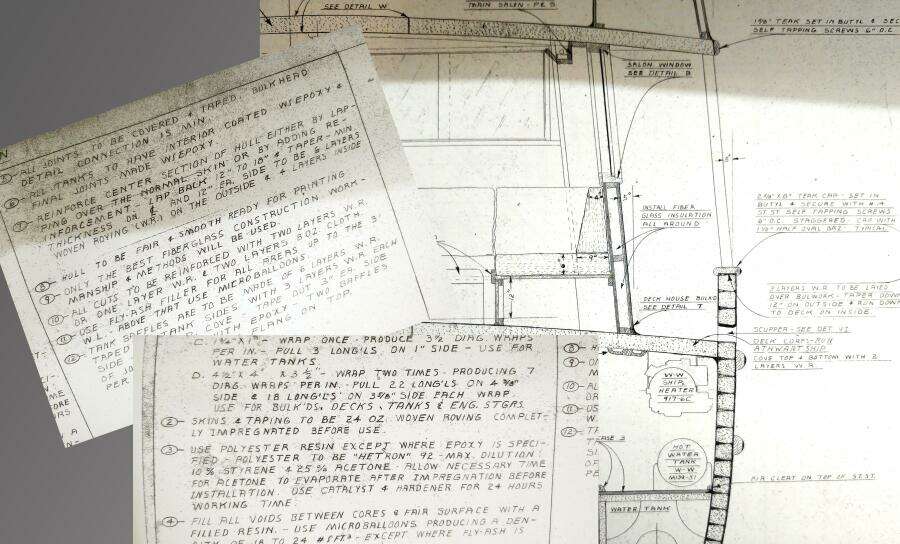 SEE DETAIL W
MAIN SALON - P & S
1⅝" TEAK SET IN BUTYL & SEC
SELF TAPPING SCREWS 6" O.C.
SALON WINDOW
SEE DETAIL B
5"
INSTALL FIBER
GLASS INSULATION
ALL AROUND
BUTYL & SECURE WITH # 14
ST. ST. SELF TAPPING SCREWS
6" O.C. STAGGERED. CAP WITH
HALF OVAL TYPICAL
DECK HOUSE BULKD
SEE DETAIL T
12"
2 LAYERS W.R. TO BE LAYED
OVER BULWORK - TAPER DOWN
12" ON OUTSIDE & RUN DOWN
TO DECK ON INSIDE
SCUPPER - SEE DET. V1
DECK CORES - RUN
ATHWARTSHIP
COVE TOP & BOTTOM WITH 2
LAYERS W.R.
W-W
SHIP
HEATER
917-6C
HOT
WATER
TANK
W-W
WATER TANK
CLEAT ON TOP OF ST. ST.
5 - ALL JOINTS TO BE COVERED & TAPED. BULKHEAD
DETAIL CONNECTION IS MIN.
6 - ALL TANKS TO HAVE INTERIOR COATED W/EPOXY &
FINAL JOINTS MADE W/EPOXY.
7 - REINFORCE CENTER SECTION OF HULL EITHER BY LAP-
PING OVER THE NORMAL SKIN OR BY ADDING RE-
INFORCEMENT - LAP BACK 12" TO 18" & TAPER - MIN.
THICKNESS ON ℄ AND 12" EA. SIDE TO BE 6 LAYERS
WOVEN ROVING (W.R.) ON THE OUTSIDE & 4 LAYERS INSIDE
8 - HULL TO BE FAIR & SMOOTH READY FOR PAINTING
9 - ONLY THE BEST FIBERGLASS CONSTRUCTION WORK-
MANSHIP & METHODS WILL BE USED.
10 - ALL CUTS TO BE REINFORCED WITH TWO LAYERS W.R.
OR ONE LAYER W.R. & TWO LAYERS 8 OZ CLOTH.
11 - USE FLY-ASH FILLER FOR ALL AREAS UP TO THE 3'
W.L. - ABOVE THAT USE MICROBALLOONS.
12 - TANK BAFFLES ARE TO BE MADE OF 6 LAYERS W.R.
TAPED TO TANK SIDES WITH 3 LAYERS W.R. EACH
COVE TAPE OUT 3" EA. SIDE
WITH EPOXY - TWO BAFFLES
FLANG ON TOP.
C. 1½" X 1" - WRAP ONCE - PRODUCE 3½ DIAG. WRAPS
PER IN. - PULL 3 LONG'LS. ON 1" SIDE - USE FOR
WATER TANKS.
D. 4½" X 4" X 3½" - WRAP TWO TIMES - PRODUCING 7
DIAG. WRAPS PER IN. - PULL 22 LONG'LS ON 4⅜"
SIDE & 18 LONG'LS ON 3⅝" SIDE EACH WRAP.
USE FOR BULK'DS, DECKS, TANKS & ENG. STGRS.
2 - SKINS & TAPING TO BE 24 OZ. WOVEN ROVING COMPLET-
LY IMPREGNATED BEFORE USE.
3 - USE POLYESTER RESIN EXCEPT WHERE EPOXY IS SPECI-
FIED - POLYESTER TO BE "HETRON" 92 - MAX. DILUTION
10% STYRENE & 25% ACETONE - ALLOW NECESSARY TIME
FOR ACETONE TO EVAPORATE AFTER IMPREGNATION BEFORE
INSTALLATION. USE CATALYST & HARDENER FOR 24 HOURS
WORKING TIME.
4 - FILL ALL VOIDS BETWEEN CORES & FAIR SURFACE WITH A
FILLED RESIN. - USE MICROBALLOONS PRODUCING A DEN-
SITY OF 18 TO 24 #/FT³ - EXCEPT WHERE FLY-ASH IS